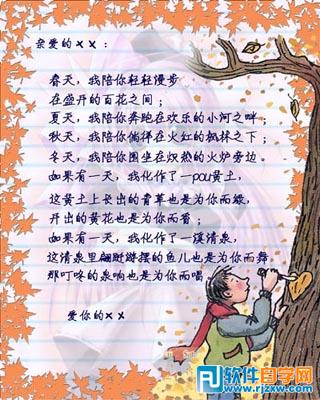 亲爱的××：
春天，我陪你轻轻漫步
在盛开的百花之间；
夏天，我陪你奔跑在欢乐的小河之畔；
秋天，我陪你徜徉在火红的枫林之下；
冬天，我陪你围坐在炽热的火炉旁边。
如果有一天，我化作了一pou黄土，
这黄土上长出的青草也是为你而绿，
开出的黄花也是为你而香；
如果有一天，我化作了一溪清泉，
这清泉里翩跹游摆的鱼儿也是为你而舞
那叮咚的泉响也是为你而唱
爱你的××
软件自学网
www.rjzxw.com